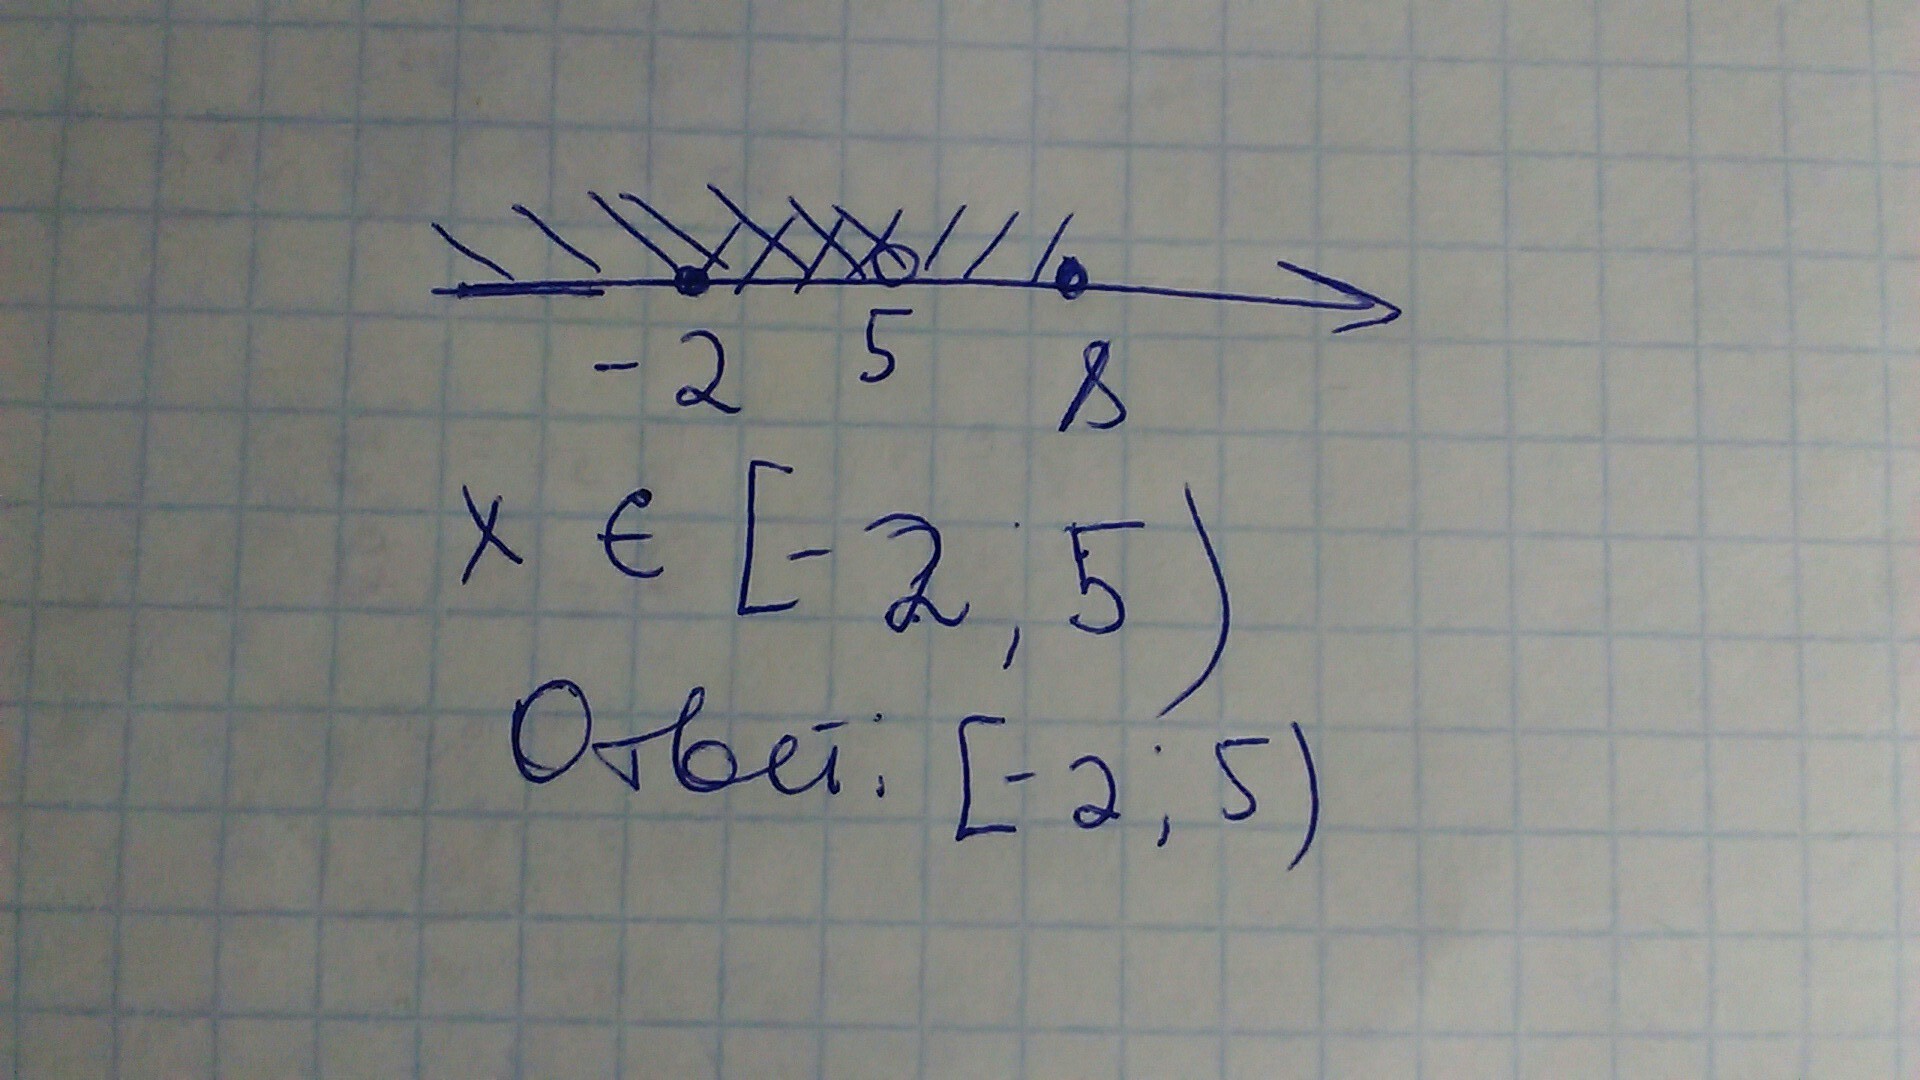 -2 5 8
x ∈ [-2; 5)
Ответ: [-2; 5)